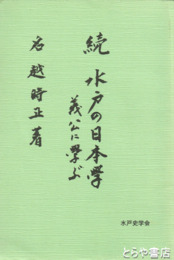 続 水戸の日本学
義公に学ぶ
名越時正著
水戸史学会
古書店
とらや書店